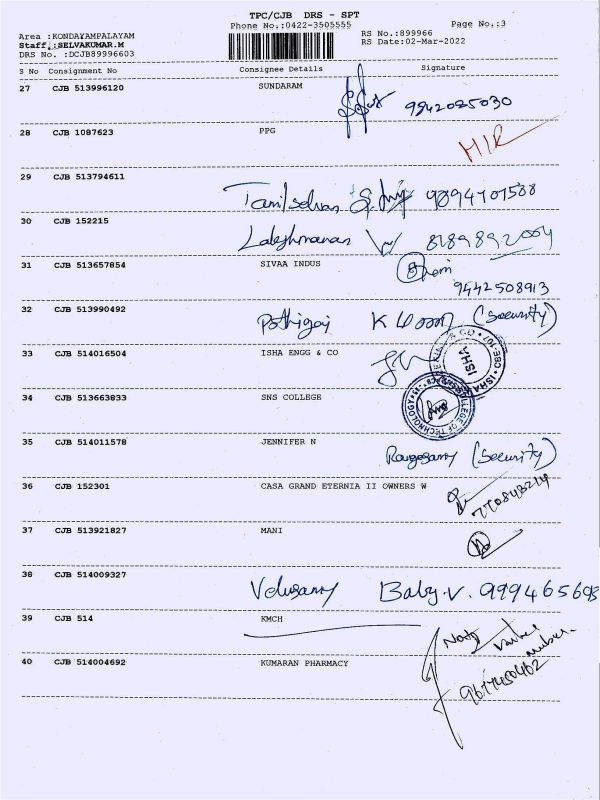 TPC/CJB DRS - SPT
Phone No.:0422-3505555
Page No.:3
Area :KONDAYAMPALAYAM
RS No.:899966
Staff.:SELVAKUMAR.M
RS Date:02-Mar-2022
DRS No. :DCJB89996603
S No Consignment No Consignee Details Signature
27 CJB 513996120 SUNDARAM
9942025030
28 CJB 1087623 PPG
29 CJB 513794611
Tamilselvan 9894707588
30 CJB 152215
Lakshmanan 8189892004
31 CJB 513657854 SIVAA INDUS
9442508913
32 CJB 513990492
Pothigai (Security)
33 CJB 514016504 ISHA ENGG & CO
ISHA
34 CJB 513663833 SNS COLLEGE
COLLEGE OF TECHNOLOGY
35 CJB 514011578 JENNIFER N
(Security)
36 CJB 152301 CASA GRAND ETERNIA II OWNERS W
37 CJB 513921827 MANI
38 CJB 514009327
Velusamy Baby.V.
39 CJB 514 KMCH
40 CJB 514004692 KUMARAN PHARMACY